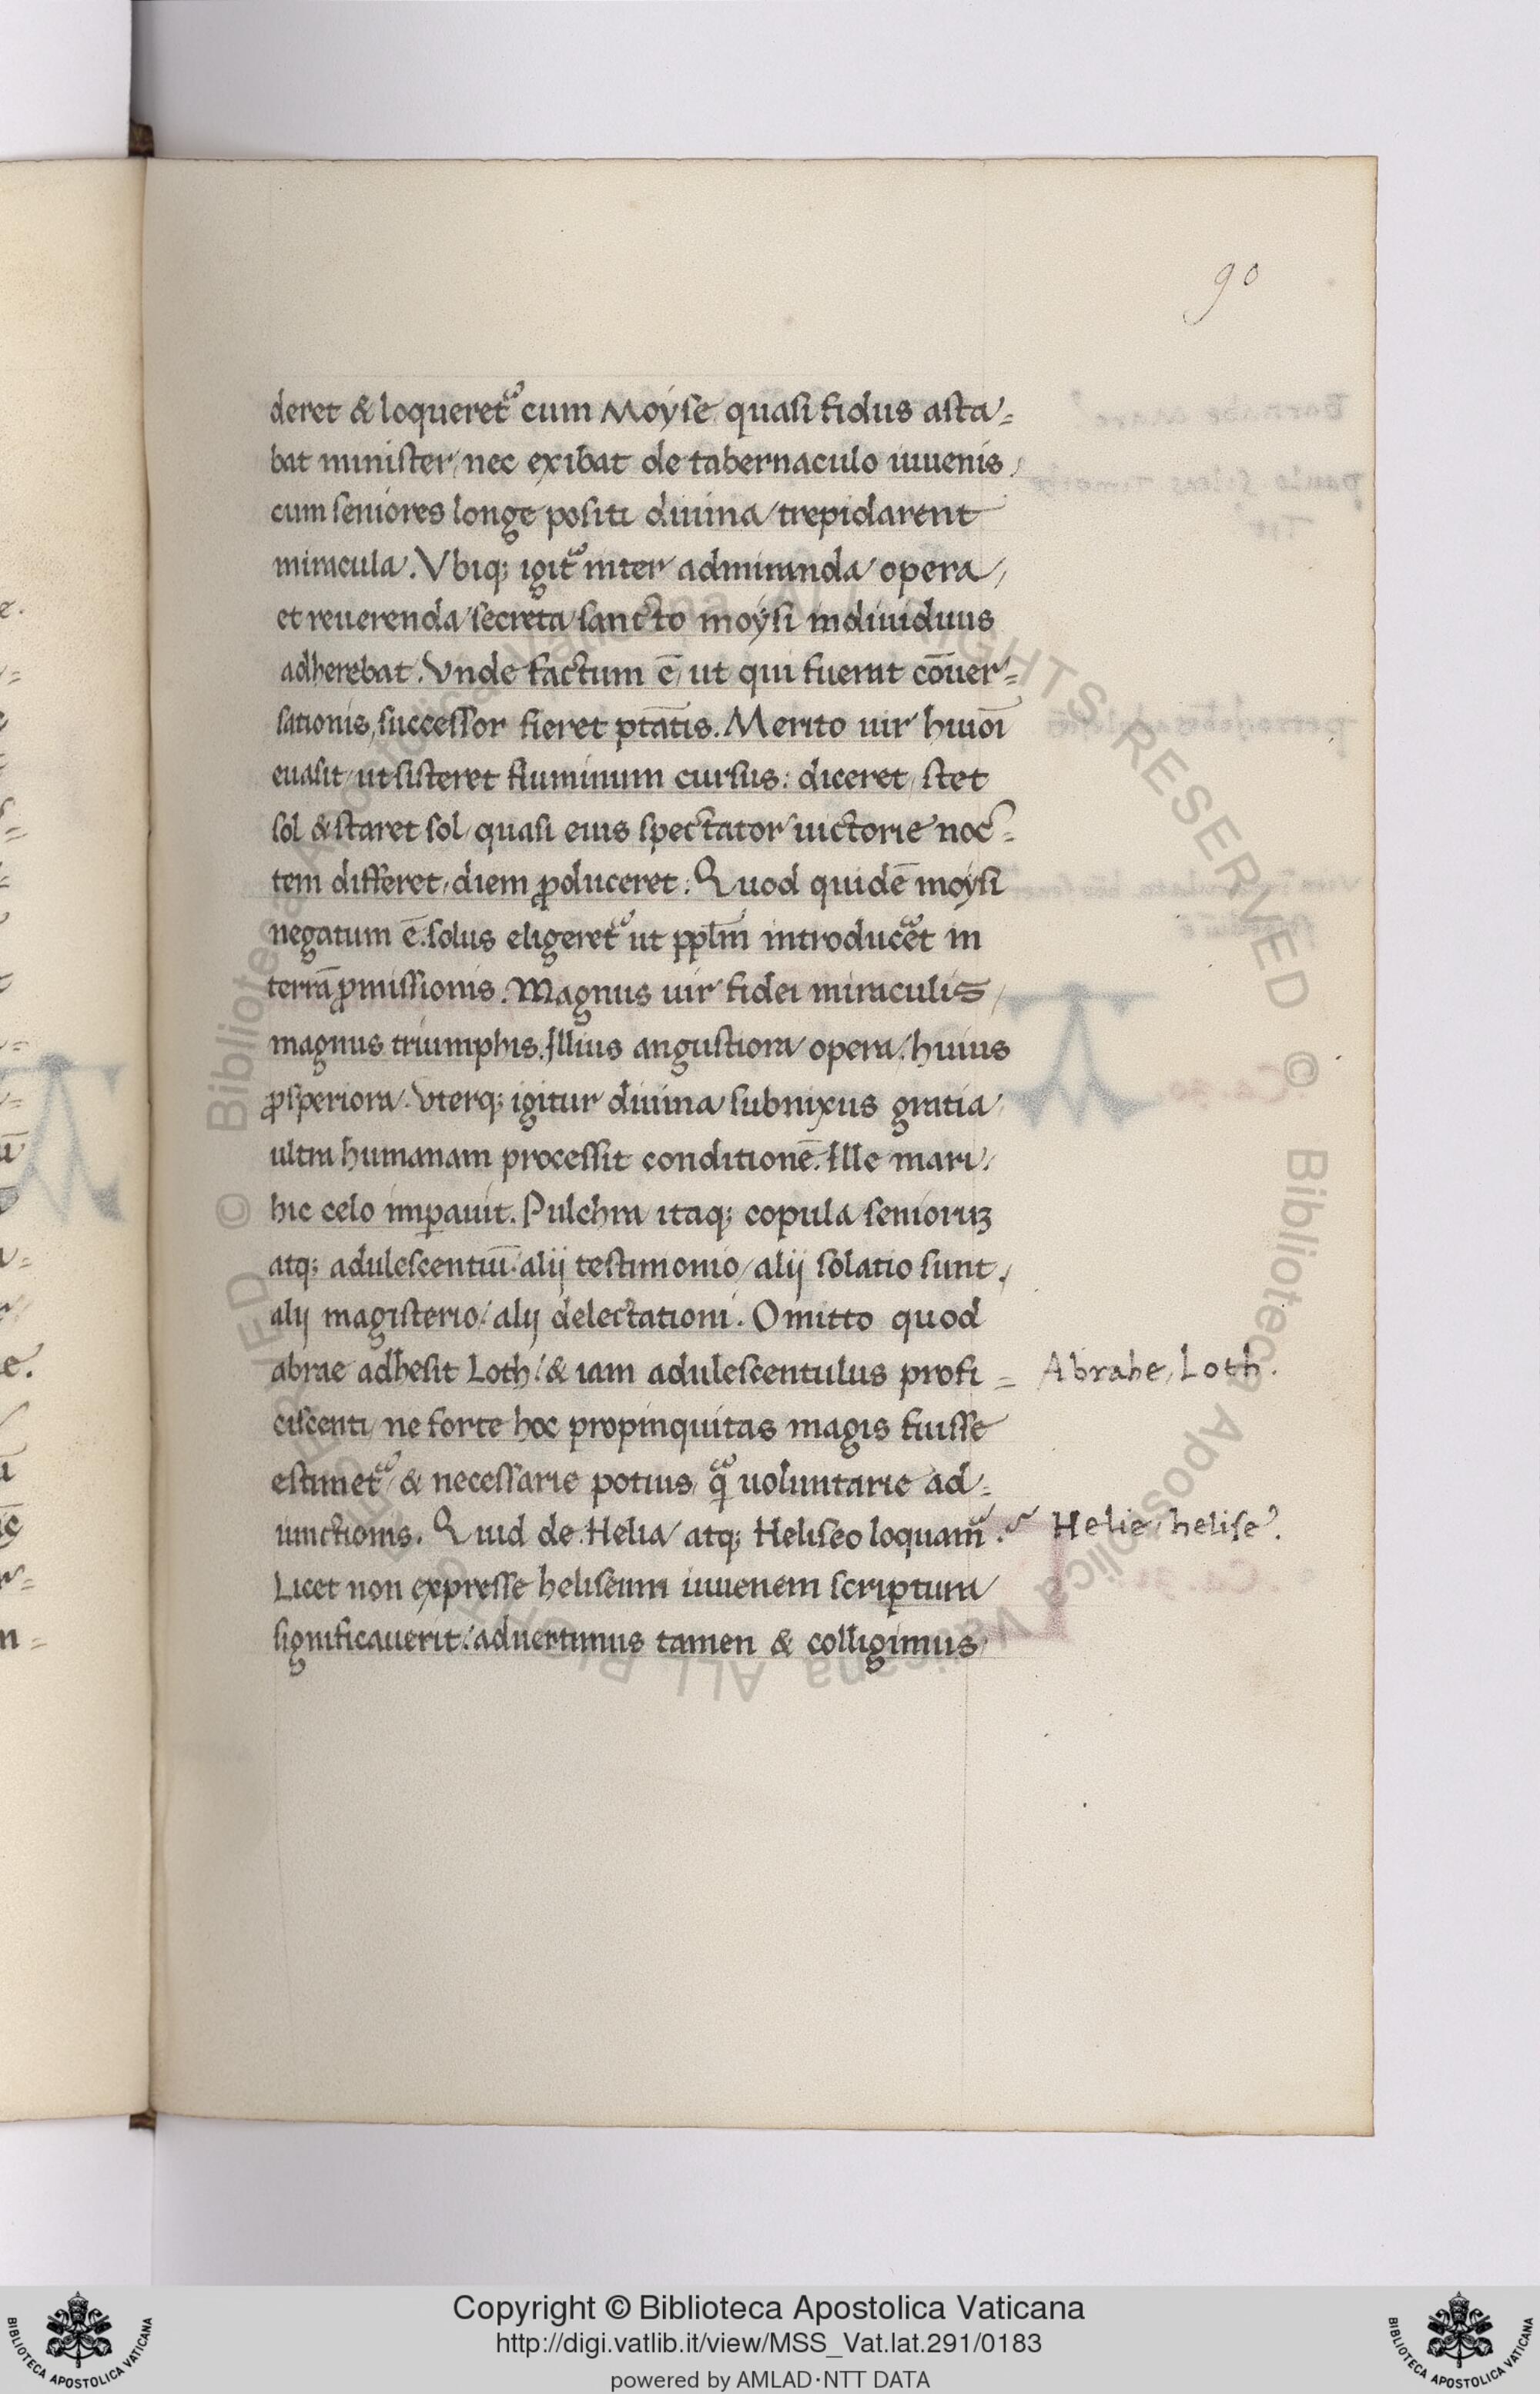 90
deret & loqueret᷑ cum Moyse quasi fidus asta=
bat minister, nec exibat de tabernaculo iuuenis,
cum seniores longe positi diuina trepidarent
miracula. Vbiq; igit᷑ inter admiranda opera,
et reuerenda secreta sancto moysi indiuiduus
adherebat. Vnde factum ē, ut qui fuerat cōuer=
sationis, successor fieret ptātis. Merito uir huiōi
euasit, ut sisteret fluminum cursus: diceret, stet
sol & staret sol, quasi eius spectator uictorie noc=
tem differet, diem ꝓduceret: Quod quidē moysi
negatum ē. solus eligeret᷑ ut ppl̄m introducēt in
terrā ꝓmissionis. Magnus uir fidei miraculis,
magnus triumphis. Illius angustiora opera, huius
ꝓsperiora. Vterq; igitur diuina subnixus gratia
ultra humanam processit conditionē. Ille mari:
hic celo imꝑauit. Pulchra itaq; copula senioruꝫ
atq; adulescentiū. alij testimonio, alij solatio sunt,
alij magisterio: alij delectationi. Omitto quod
abrae adhesit Loth: & iam adulescentulus profi=
ciscenti, ne forte hoc propinquitas magis fuisse
estimet᷑, & necessarie potius, q̄ uoluntarie ad=
iunctionis. Quid de Helia atq; Heliseo loquam᷑.
Licet non expresse heliseum iuuenem scriptura
significauerit: aduertimus tamen & colligimus,
Abrahe, Loth.
Helie, helise.
© Biblioteca Apostolica Vaticana ALL RIGHTS RESERVED © Biblioteca Apostolica Vaticana ALL RIGHTS RESERVED
Copyright © Biblioteca Apostolica Vaticana
http://digi.vatlib.it/view/MSS_Vat.lat.291/0183
powered by AMLAD·NTT DATA
BIBLIOTECA APOSTOLICA VATICANA
BIBLIOTECA APOSTOLICA VATICANA